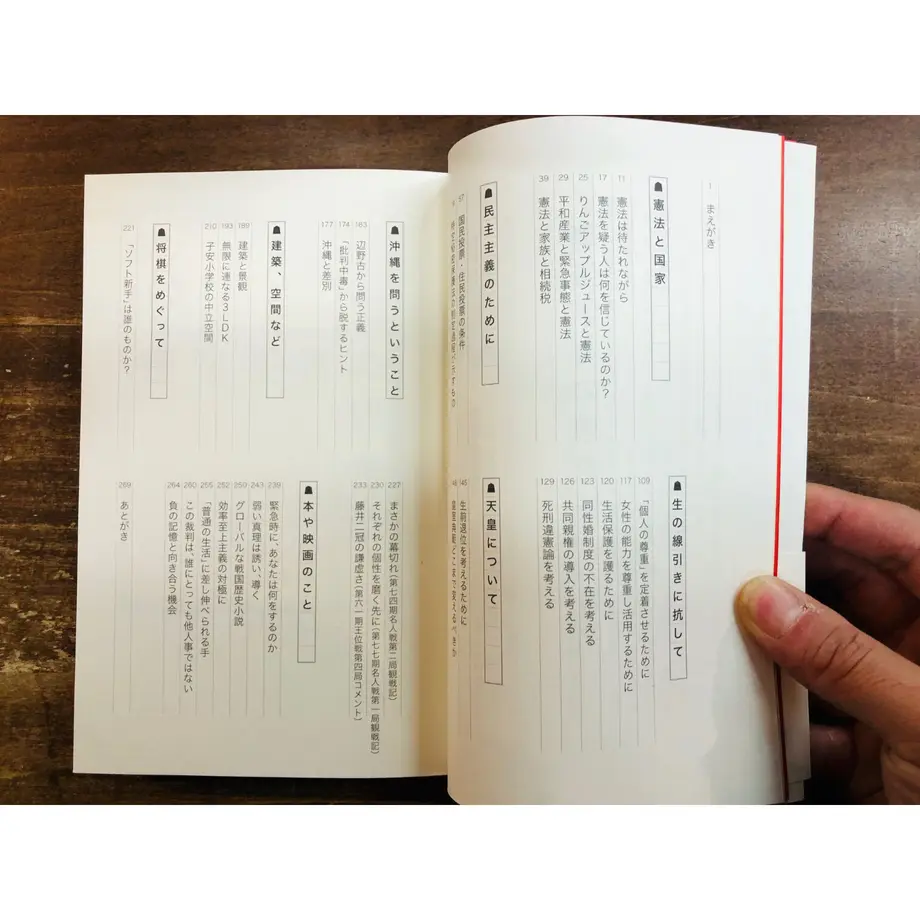 1 まえがき
憲法と国家
11 憲法は待たれながら
17 憲法を疑う人は何を信じているのか?
25 りんごアップルジュースと憲法
29 平和産業と緊急事態と憲法
39 憲法と家族と相続税
民主主義のために
国民投票・住民投票の条件
生の線引きに抗して
109 「個人の尊重」を定着させるために
117 女性の能力を尊重し活用するために
120 生活保護を護るために
123 同性婚制度の不在を考える
126 共同親権の導入を考える
129 死刑違憲論を考える
天皇について
145 生前退位を考えるために
沖縄を問うということ
163 辺野古から問う正義
174 「批判中毒」から脱するヒント
177 沖縄と差別
建築、空間など
189 建築と景観
193 無限に連なる3LDK
210 子安小学校の中立空間
将棋をめぐって
221 「ソフト新手」は誰のものか?
227 まさかの幕切れ(第七四期名人戦第二局観戦記)
230 それぞれの個性を磨く先に(第七七期名人戦第一局観戦記)
233 藤井二冠の謙虚さ(第六一期王位戦第四局コメント)
本や映画のこと
239 緊急時に、あなたは何をするのか
243 弱い真理は誘い、導く
259 グローバルな戦国歴史小説
252 効率至上主義の対極に
255 「普通の生活」に差し伸べられる手
260 この裁判は、誰にとっても他人事ではない
264 負の記憶と向き合う機会
269 あとがき